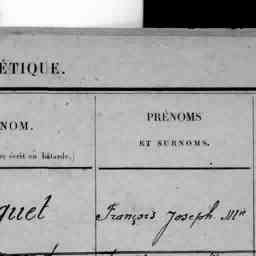 ÉTIQUE.
NOM.
re écrit en bâtarde.)
PRÉNOMS
ET SURNOMS.
quet
François Joseph Mie